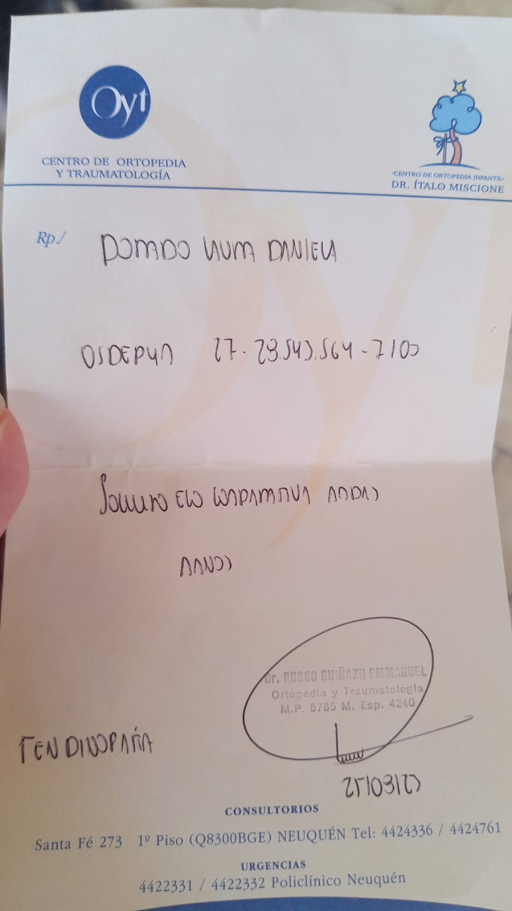 Oyt
CENTRO DE ORTOPEDIA
Y TRAUMATOLOGÍA
CENTRO DE ORTOPEDIA INFANTIL
DR. ÍTALO MISCIONE
Rp./
DANIELA
27-29.543.564-7/00
SOLICITO ECO COMPARATIVA AMBAS
MANOS
Dr. ROSSO GUIÑAZU EMMANUEL
Ortopedia y Traumatologia
M.P. 5785 M. Esp. 4240
TENDINOPATÍA
CONSULTORIOS
Santa Fé 273 1º Piso (Q8300BGE) NEUQUÉN Tel: 4424336 / 4424761
URGENCIAS
4422331 / 4422332 Policlínico Neuquén